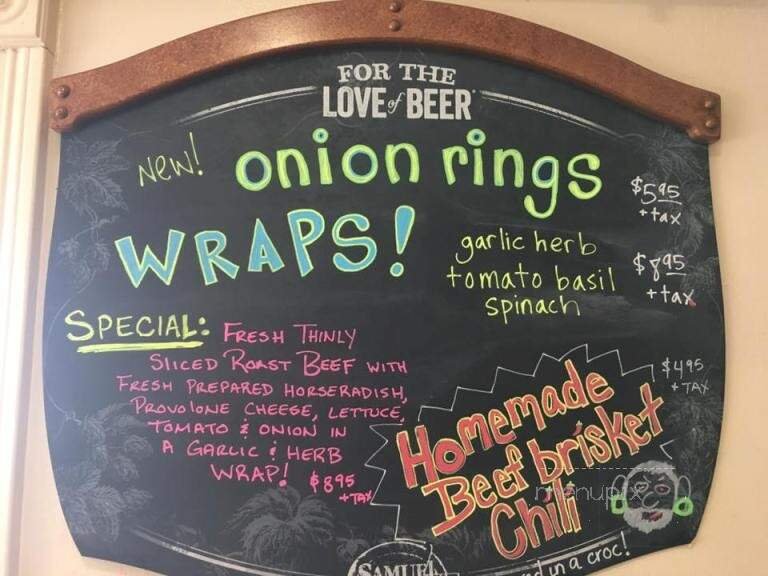 FOR THE
LOVE of BEER
New! onion rings $5.95
+tax
WRAPS!
garlic herb
tomato basil $8.95
+tax
spinach
SPECIAL: FRESH THINLY
SLICED ROAST BEEF WITH
FRESH PREPARED HORSERADISH,
PROVOLONE CHEESE, LETTUCE,
TOMATO & ONION IN
A GARLIC & HERB
WRAP! $8.95
+TAX
$4.95
+ TAX
Homemade
Beef brisket
Chili
menupix
SAMUEL
in a croc!